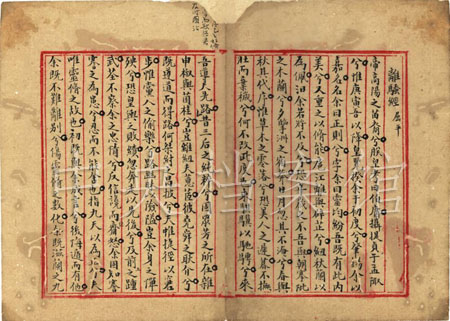 離騷經 屈平
帝高陽之苗裔兮朕皇考曰伯庸攝提貞于孟陬
兮惟庚寅吾以降皇覽揆余于初度兮肇錫余以
嘉名名余曰正則兮字余曰靈均紛吾既有此內
美兮又重之以脩能扈江離與辟芷兮紉秋蘭以
為佩汩余若將不及兮恐年歲之不吾與朝搴阰
之木蘭兮夕攬洲之宿莽日月忽其不淹兮春與
秋其代序惟草木之零落兮恐美人之遲暮不撫
壯而棄穢兮何不改此度也乘騏驥以馳騁兮來
吾道夫先路昔三后之純粹兮固衆芳之所在雜
申椒與菌桂兮豈維紉夫蕙茝彼堯舜之耿介兮
既遵道而得路何桀紂之昌披兮夫唯捷徑以窘
步惟黨人之偷樂兮路幽昧以險隘豈余身之憚
殃兮恐皇輿之敗績忽奔走以先後兮及前王之踵
武荃不察余之忠情兮反信讒而齌怒余固知謇
謇之為患兮忍而不能舍也指九天以為正兮夫
唯靈脩之故也初既與余成言兮後悔遁而有他
余既不難離別兮傷靈脩之數化余既滋蘭之九